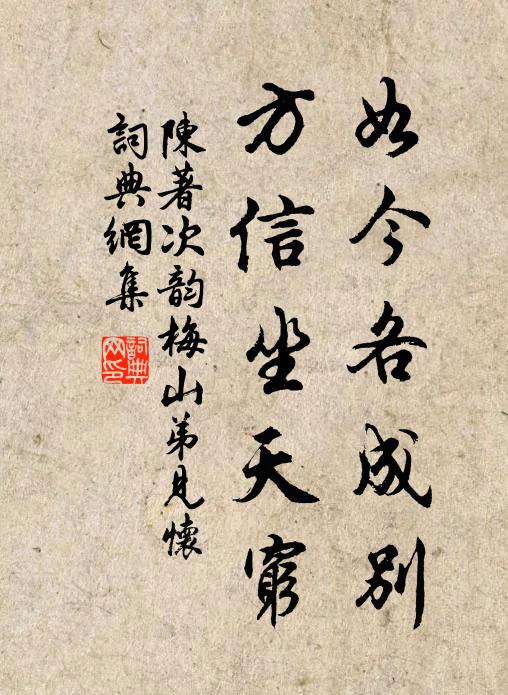 如今各成别
方信坐天窮
陳著次韵梅山弟見懷
詞典網集
詞典網印